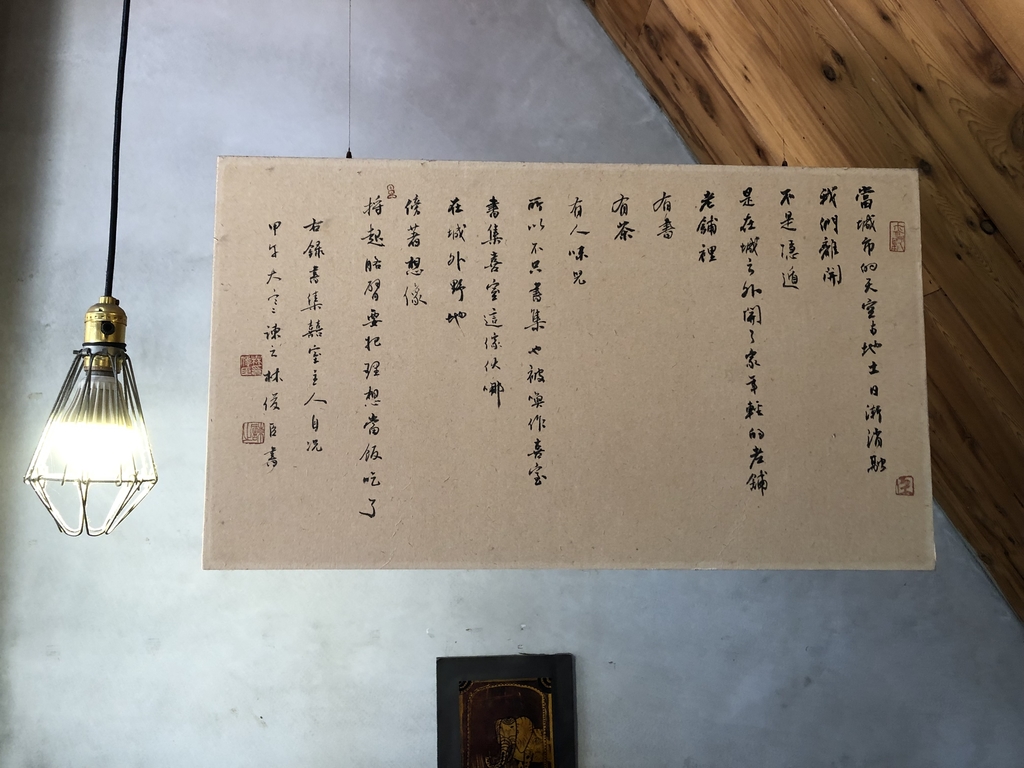 當城市的天空与地土日漸消融
我們離開
不是隱遁
是在城之外開了家年輕的老舖
老舖裡
有書
有茶
有人味兒
所以不只書集也被喚作喜室
書集喜室這傢伙哪
在城外野地
傍著想像
捋起胳臂要把理想當飯吃了
右錄書集囍室主人自况
甲午大寒 陳 林俊臣書